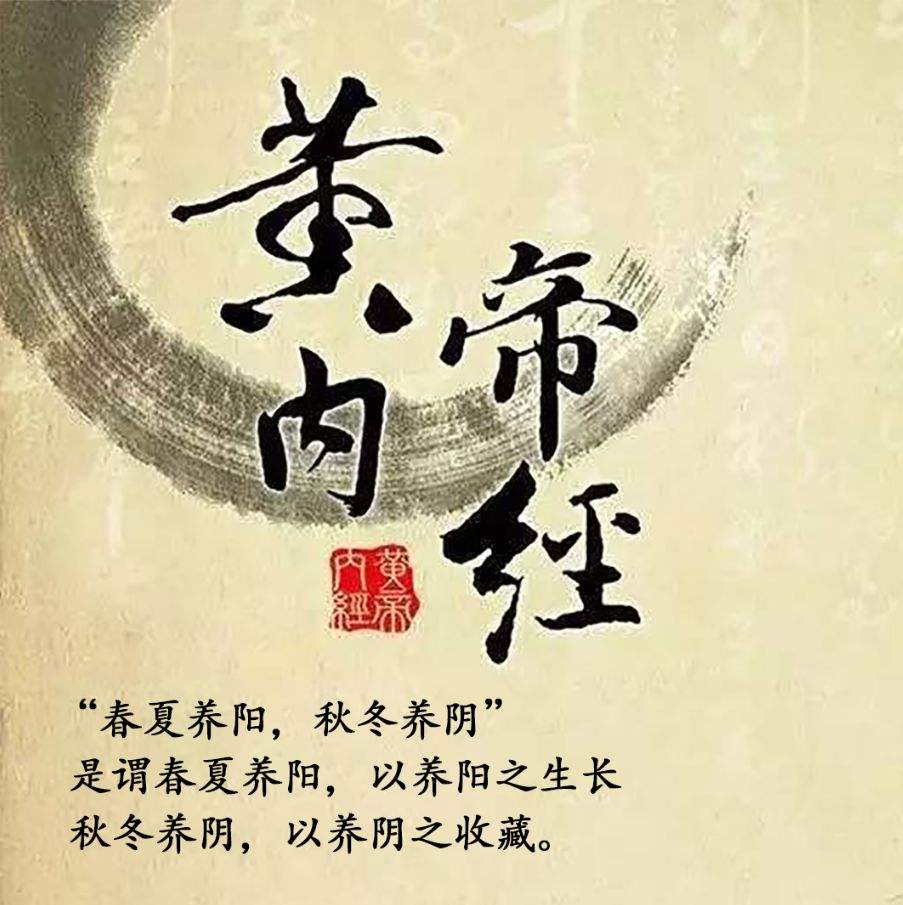 黄帝
内經
黄帝
内經
“春夏养阳，秋冬养阴”
是谓春夏养阳，以养阳之生长
秋冬养阴，以养阴之收藏。